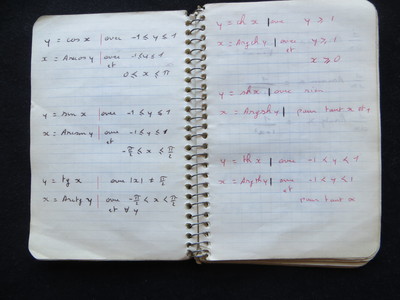 y = cos x | avec -1 ≤ y ≤ 1
x = Arccos y | avec -1 ≤ y ≤ 1
et
0 ≤ x ≤ π
y = sin x | avec -1 ≤ y ≤ 1
x = Arcsin y | avec -1 ≤ y ≤ 1
et
-π/2 ≤ x ≤ π/2
y = tg x | avec |x| ≠ π/2
x = Arctg y | avec -π/2 < x < π/2
et ∀ y
y = ch x | avec y ≥ 1
x = Argch y | avec y ≥ 1
et
x ≥ 0
y = sh x | avec rien
x = Argsh y | pour tout x et y
y = th x | avec -1 < y < 1
x = Argth y | avec -1 < y < 1
et
pour tout x